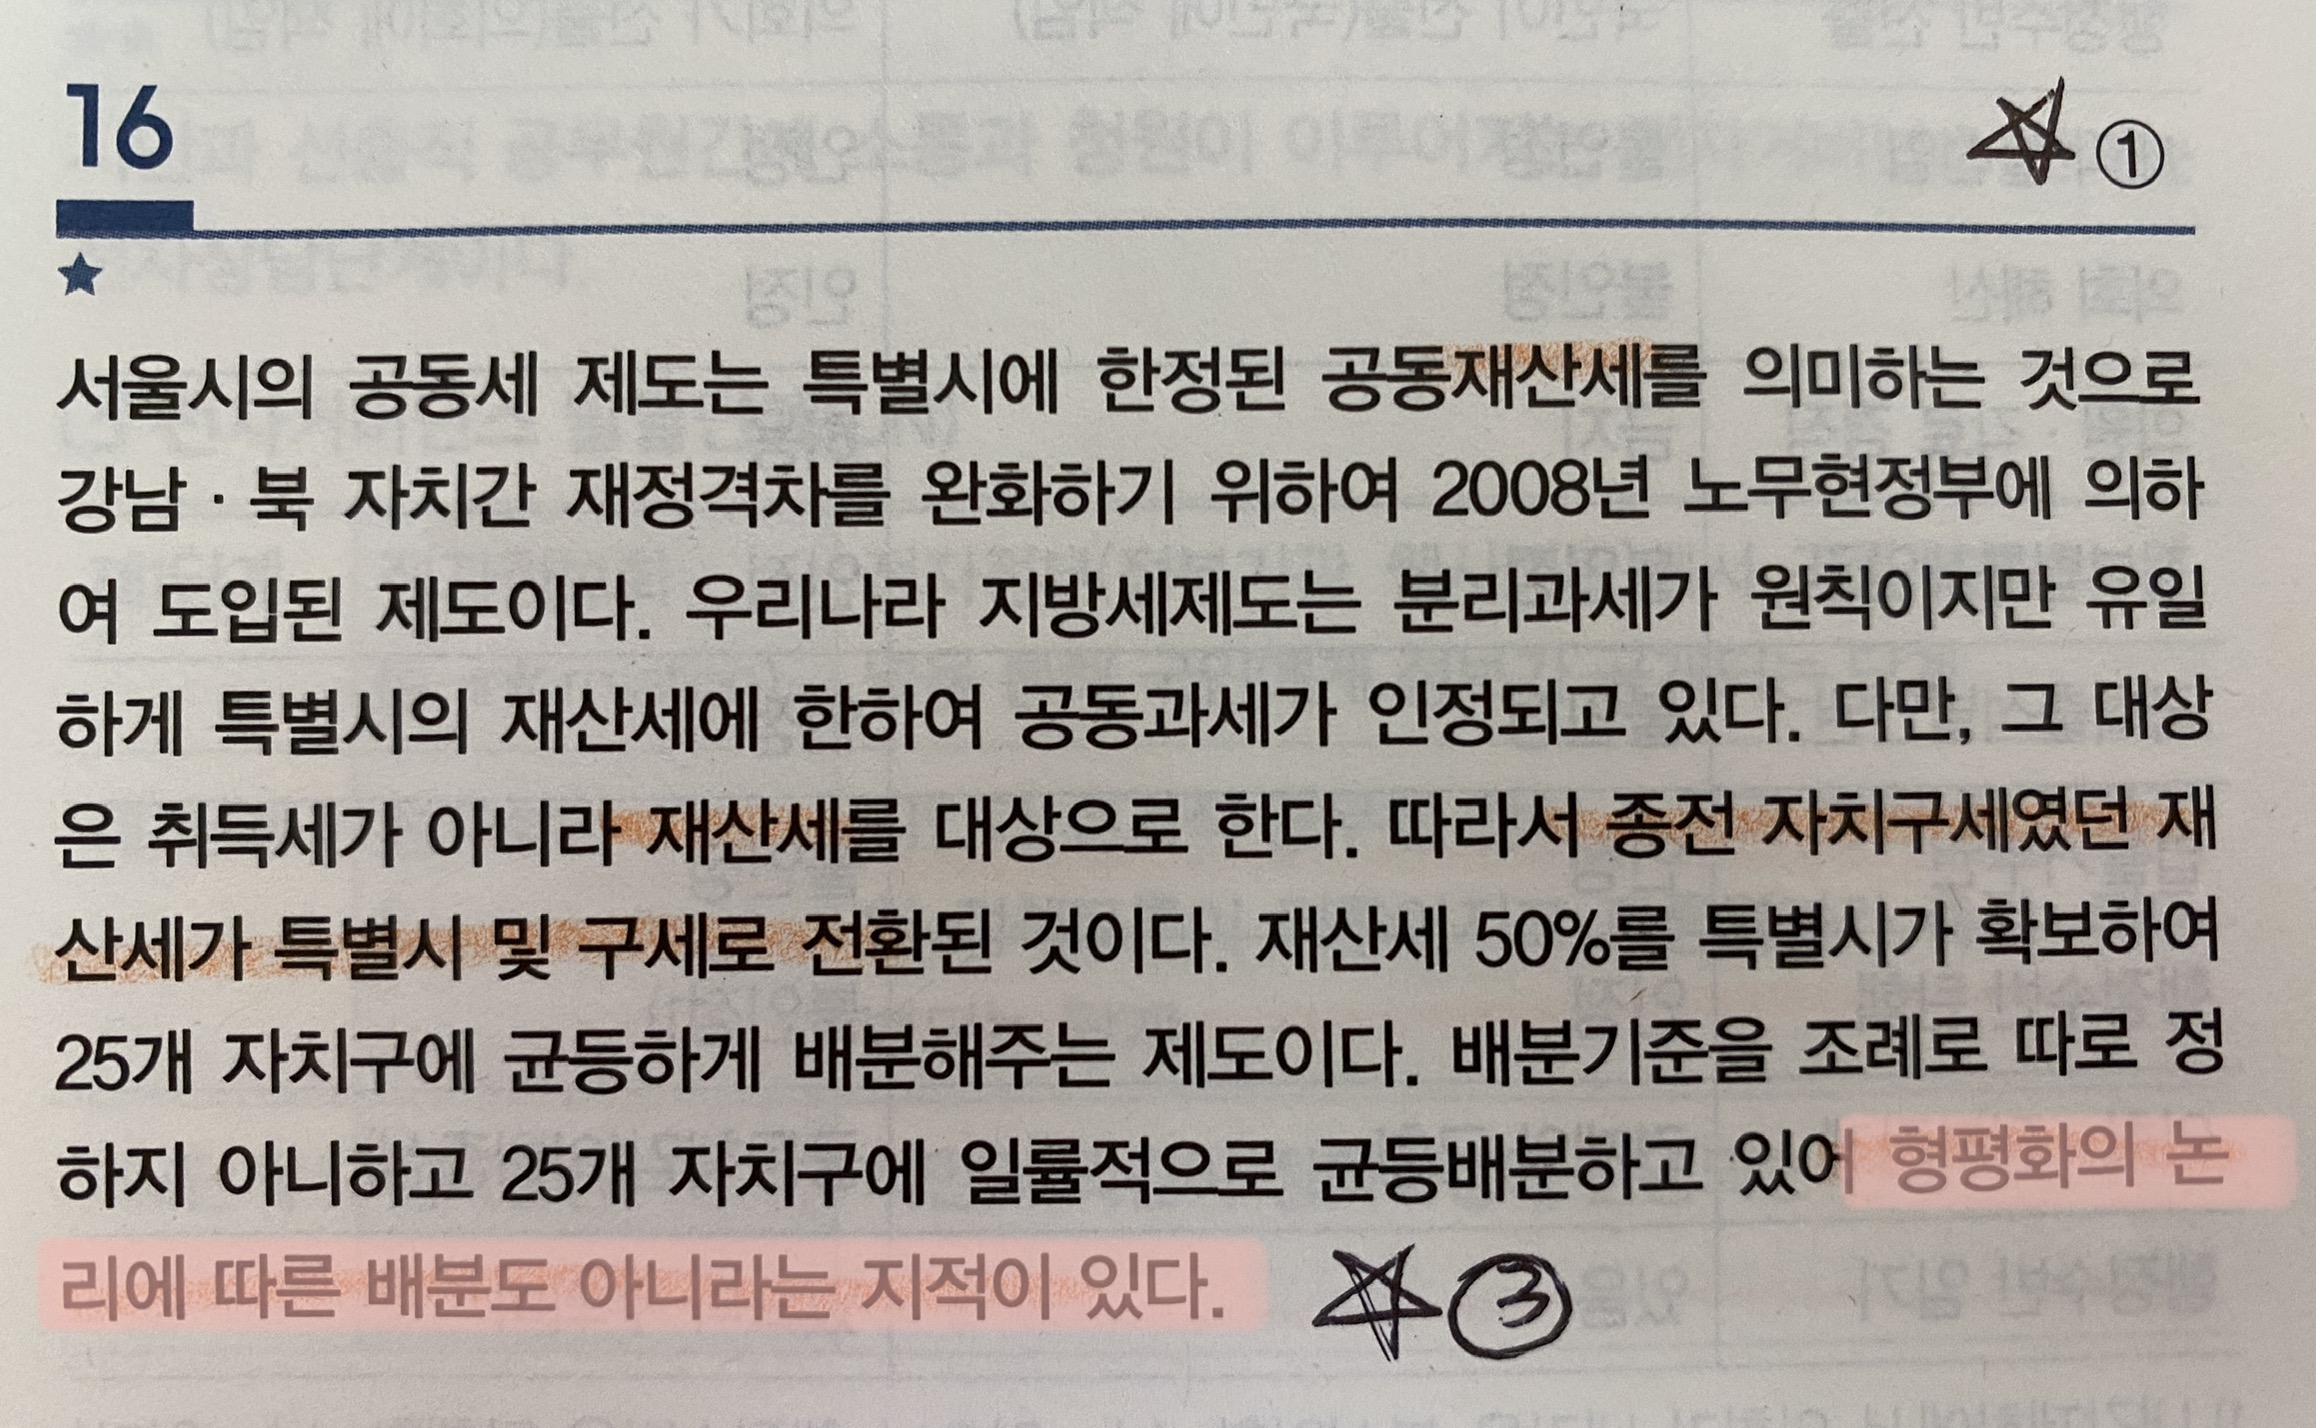 16
☆ ①
★
서울시의 공동세 제도는 특별시에 한정된 공동재산세를 의미하는 것으로
강남·북 자치간 재정격차를 완화하기 위하여 2008년 노무현정부에 의하
여 도입된 제도이다. 우리나라 지방세제도는 분리과세가 원칙이지만 유일
하게 특별시의 재산세에 한하여 공동과세가 인정되고 있다. 다만, 그 대상
은 취득세가 아니라 재산세를 대상으로 한다. 따라서 종전 자치구세였던 재
산세가 특별시 및 구세로 전환된 것이다. 재산세 50%를 특별시가 확보하여
25개 자치구에 균등하게 배분해주는 제도이다. 배분기준을 조례로 따로 정
하지 아니하고 25개 자치구에 일률적으로 균등배분하고 있어 형평화의 논
리에 따른 배분도 아니라는 지적이 있다. ☆ ③